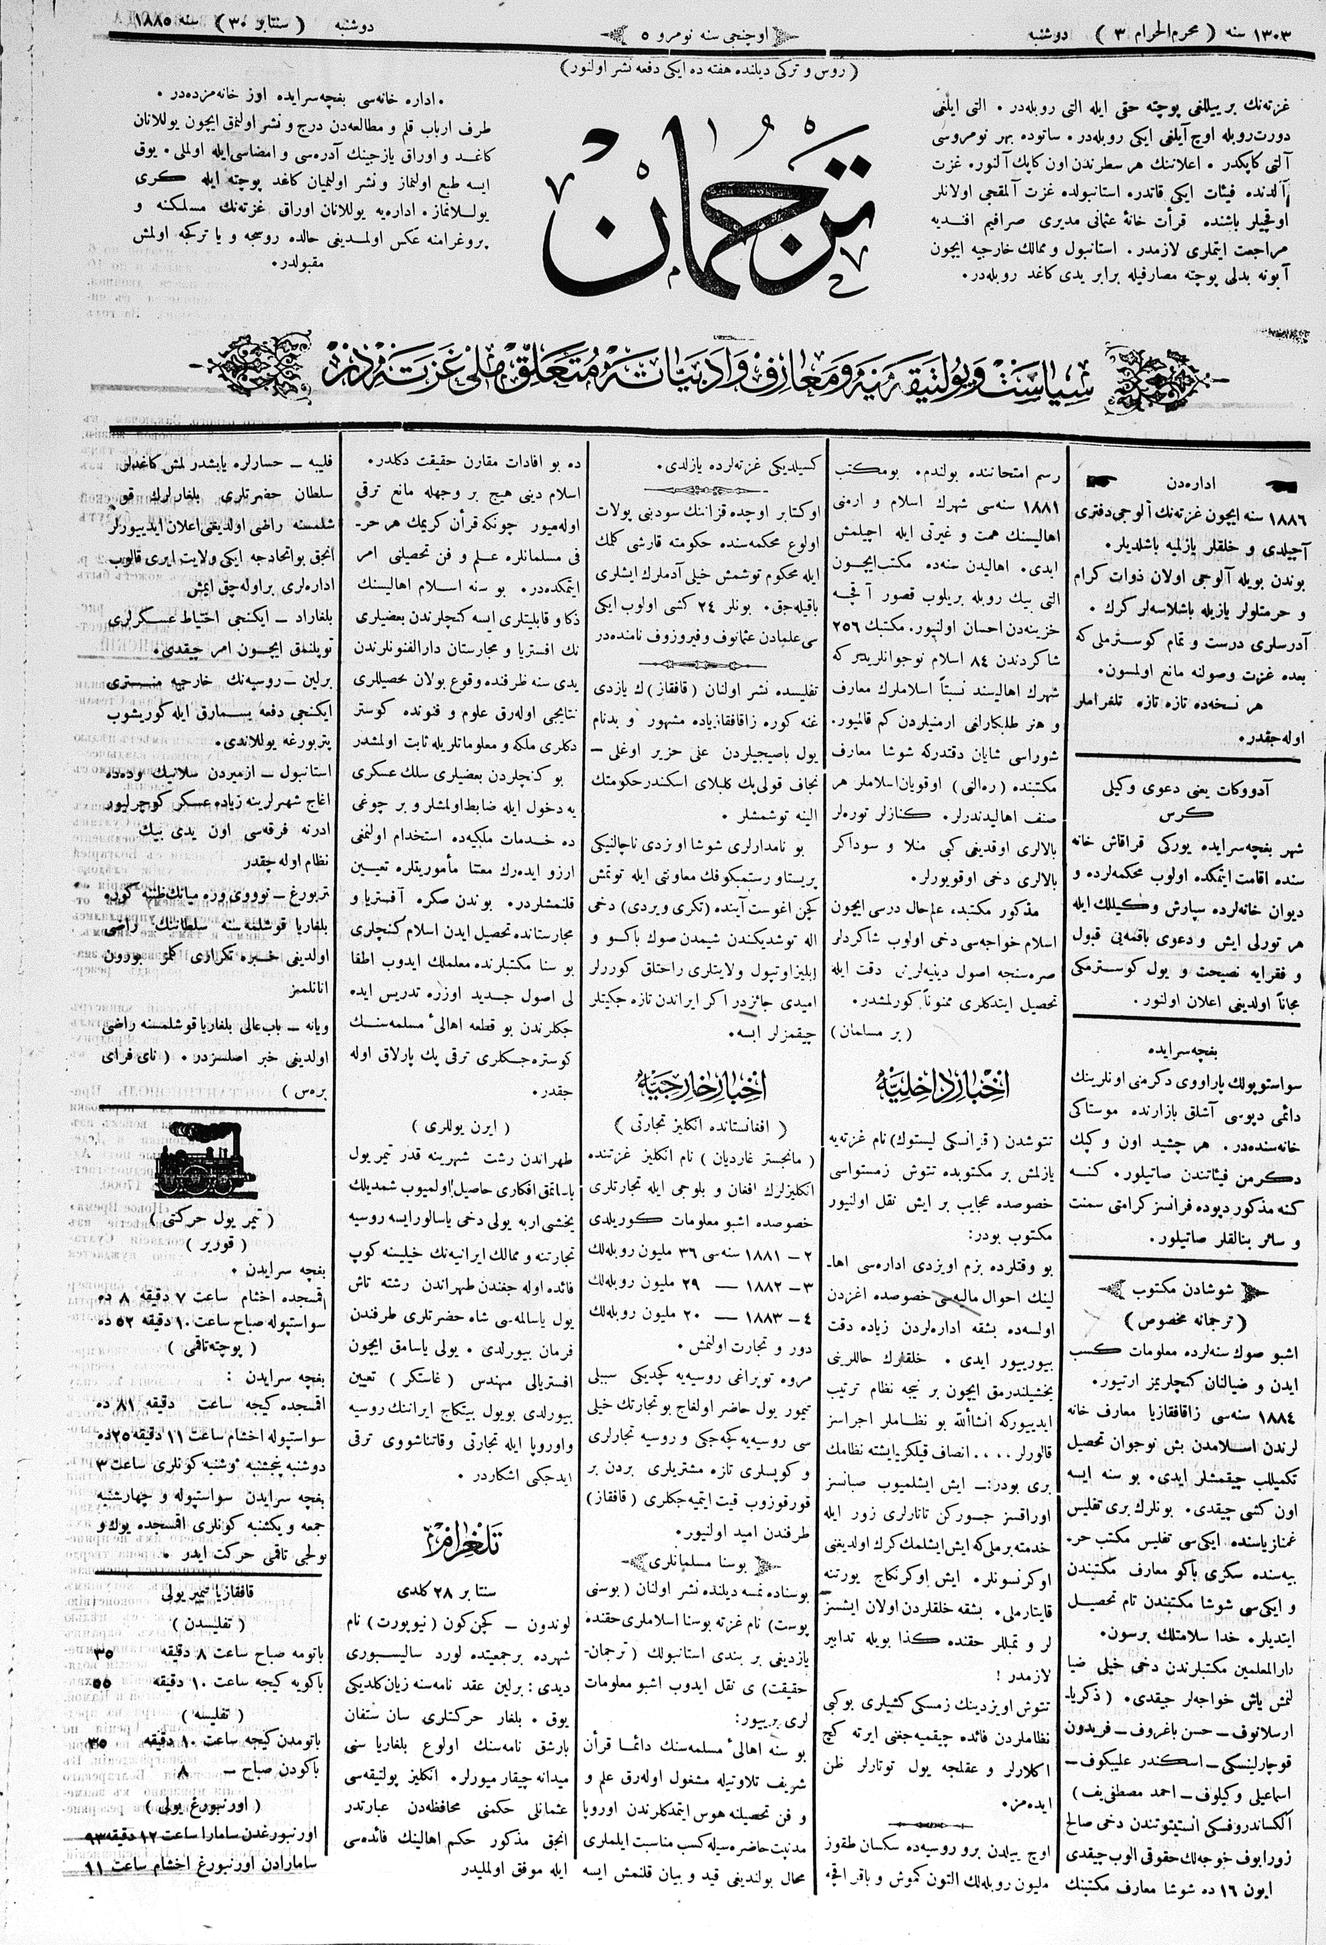 ١٣٠٣ سنه ( محرم الحرام ٣ ) دوشنبه
اوچنجی سنه نومرو ٥
دوشنبه ( سنتابر ٣٠ ) سنه ١٨٨٥
( روس و تركی دیلنده هفته ده ایكی دفعه نشر اولنور )
غزته‌نك بر ییللغی پوچته حقی ایله التی روبله‌در . التی ایلغی
دورت روبله اوچ آیلغی ایكی روبله‌در . ساتوده بهر نومروسی
آلتی كاپكدر . اعلاننك هر سطرندن اون كاپك آلنور . غزت
آلدنده فیئات ایكی قاتدره . استانبولده غزت آلمقجی اولانلر
اوقجیلر باشنده قرأت خانهٔ عثمانی مدیری صرافیم افندیه
مراجعت ایتملری لازمدر . استانبول و ممالك خارجیه ایچون
آبونه بدلی پوچته مصارفیله برابر یدی كاغد روبله‌در .
ترجمان
. اداره خانه‌سی بغچه‌سرایده اوز خانه‌مزده‌در .
طرف ارباب قلم و مطالعه‌دن درج و نشر اولنمق ایچون یوللانان
كاغد و اوراق یازجینك آدره‌سی و امضاسی ایله اولملی . یوق
ایسه طبع اولنماز و نشر اولنمیان كاغد پوچته ایله كری
یوللانماز . اداره‌یه یوللانان اوراق غزته‌نك مسلكنه و
پروغرامنه عكس اولمدیغی حالده روسجه و یا تركجه اولمش
مقبولدر .
سیاست و پولتیقه‌یه و معارف و ادبیاته متعلق ملی غزته‌در
اداره‌دن
١٨٨٦ سنه ایچون غزته‌نك آلوجی دفتری
آچیلدی و خلقلر یازلمیه باشلدیلر .
بوندن بویله آلوجی اولان ذوات كرام
و حرمتلولر یازیله باشلاسه‌لر كرك .
آدرسلری درست و تمام كوسترملی كه
بعده غزت وصولنه مانع اولمسون .
هر نسخه‌ده تازه تازه تلغراملر
اوله‌جقدر .
آدووكات یعنی دعوی وكیلی
كرس
شهر بغچه‌سرایده یوركی قراقاش خانه
سنده اقامت ایتمكده اولوب محكمه‌لرده و
دیوان خانه‌لرده سپارش وكیللك ایله
هر تورلی ایش و دعوی باقمه‌یی قبول
و فقرایه نصیحت و یول كوسترمكی
مجاناً اولدیغی اعلان اولنور .
بغچه‌سرایده
سواستوپولك پاراووی دكرمنی اونلرینك
دائمی دپوسی آشلق بازارنده موستاكی
خانه‌سنده‌در . هر چشید اون و كپك
دكرمن فیئاتندن صاتیلور . كنه
كنه مذكور دپوده فرانسز كرامتی سمنت
و سائر بنالقلر صاتیلور .
شوشادن مكتوب
( ترجمانه مخصوص )
اشبو صوك سنه‌لرده معلومات كسب
ایدن و ضیالنان كنچلریمز ارتیور .
١٨٨٤ سنه‌سی زاقافقازیا معارف خانه
لرندن اسلامدن بش نوجوان تحصیل
تكمیللب چیقمشلر ایدی . بو سنه ایسه
اون كشی چیقدی . بونلرك بری تفلیس
غمنازیاسنده . ایكی‌سی تفلیس مكتب حر-
بیه‌سنده سكزی باكو معارف مكتبندن
و ایكی‌سی شوشا مكتبندن تام تحصیل
ایتدیلر . خدا سلامتلك برسون .
دارالمعلمین مكتبلرندن دخی خیلی ضیا
لنمش یاش خواجه‌لر چیقدی . ( ذكریا-
ارسلانوف – حسن باغروف – فریدون
قوچارلینسكی – اسكندر علیبكوف –
اسماعیلی وكیلوف – احمد مصطفی‌یف )
آلكساندروفسكی انستیتوتندن دخی صالح
زورابوف خوجه‌لك حقوقی الوب چیقدی
ایون ١٦ ده شوشا معارف مكتبنك
رسم امتحاننده بولندم . بومكتب
١٨٨١ سنه‌سی شهرك اسلام و ارمنی
اهالیسنك همت و غیرتی ایله اچیلمش
ایدی . اهالیدن سنه‌ده مكتب ایچون
التی بیك روبله بریلوب قصور آقچه
خزینه‌دن احسان اولنیور . مكتبك ٢٥٦
شاكردندن ٨٤ اسلام نوجوانلریدر كه
شهرك اهالیسند نسبتاً اسلاملرك معارف
و هنر طلبكارلغی ارمنیلردن كم قالمیور .
شوراسی شایان دقتدركه شوشا معارف
مكتبنده ( ره‌النی ) اوقویان اسلاملر هر
صنف اهالیدندرلر . كنازلر توره‌لر
بالالری اوقدیغی كبی منلا و سوداكر
بالالری دخی اوقویورلر .
مذكور مكتبده علمحال درسی ایچون
اسلام خواجه‌سی دخی اولوب شاكردلر
صره‌سنجه اصول دینیه‌لرنی دقت ایله
تحصیل ایتدكلری ممنوناً كورلمشدر .
( بر مسلمان )
اخبار داخلیه
تتوشدن ( قزانسكی لیستوك ) نام غزته‌یه
یازلمش بر مكتوبده تتوش زمستواسی
خصوصده عجایب بر ایش نقل اولنیور
مكتوب بودر :
بو وقتلرده بزم اویزدی اداره‌سی اها-
لینك احوال مالیه‌سی خصوصده اغزدن
اولسه‌ده بشقه اداره‌لردن زیاده دقت
بیوریبور ایدی . خلقلرك حاللرینی
یخشیلندرمق ایچون بر نیجه نظام ترتیب
ایدیبوركه انشاالله بو نظاملر اجراسز
قالورلر . . . . انصاف قیلكز یا ایشته نظامك
بری بودر :– ایش ایشلمیوب صبانسز
اوراقسز جوركن تاتارلری زور ایله
خدمته برملی كه ایش ایشلمك كرك اولدیغی
اوكرنسونلر . ایش اوكرنكاج یورتنه
قایتارملی . بشقه خلقلردن اولان ایشسز
لر و تمبللر حقنده كذا بویله تدابیر
لازمدر !
تتوش اویزدینك زمسكی كشیلری بوكبی
نظاملردن فائده چیقمیه‌جغنی ایرته كیچ
اكلارلر و عقلمجه یول توتارلر ظن
ایده‌مز .
اوچ ییلدن برو روسیه‌ده سكسان طقوز
ملیون روبله‌لك التون كموش و باقر اقچه
كسیلدیكی غزته‌لرده یازلدی .
اوكتابر اوچده قزاننك سودبنی پولات
اولوغ محكمه‌سنده حكومته قارشی كلمك
ایله محكوم توشمش خیلی آدملرك ایشلری
باقیله‌جق . بونلر ٢٤ كشی اولوب ایكی
سی علمادن عثمانوف و فیروزوف نامنده‌در
تفلیسده نشر اولنان ( قافقاز ) ك یازدی
غنه كوره زاقافقازیاده مشهور و بدنام
یول باصیجیلردن علی حزیر اوغلی –
نجاف قولی بك كلبلای اسكندر حكومتك
الینه توشمشلر .
بو نامدارلری شوشا اویزدی ناچالنیكی
پریستاو رستمبكوفك معاونتی ایله توتمش
كچن اغوست آینده ( تكری ویردی ) دخی
اله توشدیكندن شیمدن صوك باكو و
ایلیزاوتپول ولایتلری راحتلق كوررلر
امیدی جائزدر اكر ایراندن تازه جكیتلر
چیقمزلر ایسه .
اخبار خارجیه
( افغانستانده انكلیز تجارتی )
( مانچستر غاردیان ) نام انكلیز غزتنده
انكلیزلرك افغان و بلوجی ایله تجارتلری
خصوصده اشبو معلومات كوریلدی
٢ – ١٨٨١ سنه‌سی ٣٦ ملیون روبله‌لك
٣ – ١٨٨٢ — ٢٩ ملیون روبله‌لك
٤ – ١٨٨٣ — ٢٠ ملیون روبله‌لك
دور و تجارت اولنمش .
مروه توپراغی روسیه‌یه كچدیكی سببلی
تیمور یول حاضر اولغاج بو تجارتك خیلی
سی روسیه‌یه كچه‌جكی و روسیه تجارلری
و كوپسلری تازه مشتریلری بردن بر
قورقوزوب قیت ایتمیه‌جكلری ( قافقاز )
طرفندن امید اولنیور .
بوسنا مسلمانلری
بوسناده نمسه دیلنده نشر اولنان ( بوسنی
پوست ) نام غزته بوسنا اسلاملری حقنده
یازدیغی بر بندی استانبولك ( ترجمان-
حقیقت ) ی نقل ایدوب اشبو معلومات
لری بریبور :
بو سنه اهالیٔ مسلمه‌سنك دائما قرآن
شریف تلاوتیله مشغول اوله‌رق علم و
و فن تحصیلنه هوس ایتمدكلرندن اوروپا
مدنیت حاضره‌سیله كسب مناسبت ایلملری
محال بولندیغی قید و بیان قلنمش ایسه
ده بو افادات مقارن حقیقت دكلدر .
اسلام دینی هیچ بر وجهله مانع ترقی
اوله‌میور چونكه قرآن كریمك هر حر-
فی مسلمانلره علم و فن تحصیلنی امر
ایتمكده‌در . بو سنه اسلام اهالیسنك
ذكا و قابلیتلری ایسه كنچلرندن بعضیلری
نك افستریا و مجارستان دارالفنونلرندن
یدی سنه ظرفنده وقوع بولان تحصیللری
نتایجی اوله‌رق علوم و فنونده كوستر
دكلری ملكه و معلوماتلریله ثابت اولمشدر
بو كنچلردن بعضیلری سلك عسكری
یه دخول ایله ضابط اولمشلر و بر چوغی
ده خدمات ملكیه‌ده استخدام اولنمغی
ارزو ایده‌رك معتنا مأموریتلره تعیین
قلنمشلردر . بوندن صكره آفستریا و
مجارستانده تحصیل ایدن اسلام كنچلری
بو سنا مكتبلرنده معلملك ایدوب اطفا
لی اصول جدید اوزره تدریس ایده
جكلرندن بو قطعه اهالیٔ مسلمه‌سنك
كوستره‌جكلری ترقی پك پارلاق اوله
جقدر .
( ایرن یوللری )
طهراندن رشت شهرینه قدر تیمر یول
یاساتمق افكاری حاصل اولمیوب شمدیلك
یخشی اربه یولی دخی یاسالور ایسه روسیه
تجارتنه و ممالك ایرانیه‌نك خیلیسنه كوپ
فائده اوله جغندن طهراندن رشته تاش
یول یاسالمه‌سی شاه حضرتلری طرفندن
فرمان بیورلدی . یولی یاسامق ایچون
افستریالی مهندس ( غاستكر ) تعیین
بیورلدی بویول بیتكاج ایراننك روسیه
واوروپا ایله تجارتی وقاتناشووی ترقی
ایدجكی اشكاردر .
تلغرام
سنتابر ٢٨ كلدی
لوندون – كچن كون ( نیوپورت ) نام
شهرده برجمعیتده لورد سالیسبوری
دیدی : برلین عقد نامه‌سنه زیان كلدیكی
یوق . بلغار حركتلری سان ستفان
بارشق نامه‌سنك اولوغ بلغاریا سنی
میدانه چیقار میورلر . انكلیز پولتیقه‌سی
عثمانلی حكمنی محافظه‌دن عبارتدر
انجق مذكور حكم اهالینك فائده‌سی
ایله موفق اولملیدر
فلیبه – حسارلره یاپشدرلمش كاغدلر
سلطان حضرتلری بلغارلرك قو
شلمسنه راضی اولدیغی اعلان ایدیبورلر
انجق بواتحادجه ایكی ولایت ایری قالوب
اداره‌لری براوله‌جق ایمش
بلغاراد – ایكنجی احتیاط عسكرلری
توپلنمق ایچون امر چیقدی .
برلین – روسیه‌نك خارجیه منستری
ایكنجی دفعه بسمارق ایله كوریشوب
پتربورغه یوللاندی .
استانبول – ازمیردن سلانیك و دده
اغاج شهرلرینه زیاده عسكر كوچرلیور
ادرنه فرقه‌سی اون یدی بیك
نظام اوله جقدر
تربورغ – نووی وره میانك ظننه كوره
بلغاریا قوشلمه‌سنه سلطاننك راضی
اولدیغی خبره تكراری كلمز بورون
انانلمیز
ویانه – باب عالی بلغاریا قوشلمسنه راضی
اولدیغی خبر اصلسزدر . ( نای فرای
پره‌س )
( تیمر یول حركتی )
( قوریر )
بغچه سرایدن .
اقمسجده اخشام ساعت ٧ دقیقه ٨ ده
سواستپوله صباح ساعت ١٠ دقیقه ٥٢ ده
( پوچته تاقمی )
بغچه سرایدن :
اقمسجده كیجه ساعت دقیقه ٨١ ده
سواستپوله اخشام ساعت ١١ دقیقه ٢٥ ده
دوشنبه پنجشنبه كونلری ساعت ٣
بغچه سرایدن سواستپوله و چهارشنبه
جمعه و یكشنبه كونلری اقمسجده یوك و
یولجی تاقمی حركت ایدر .
قافقازیا تیمیر یولی
( تفلیسدن )
باتومه صباح ساعت ٨ دقیقه ٣٥
باكویه كیجه ساعت ١٠ دقیقه ٥٥
( تفلیسه )
باتومدن كیجه ساعت ١٠ دقیقه ٣٥
باكودن صباح – ٨
( اورنبورغ یولی )
اورنبورغدن سامارا ساعت ١٢ دقیقه ٩٣
سامارادن اورنبورغ اخشام ساعت ١١